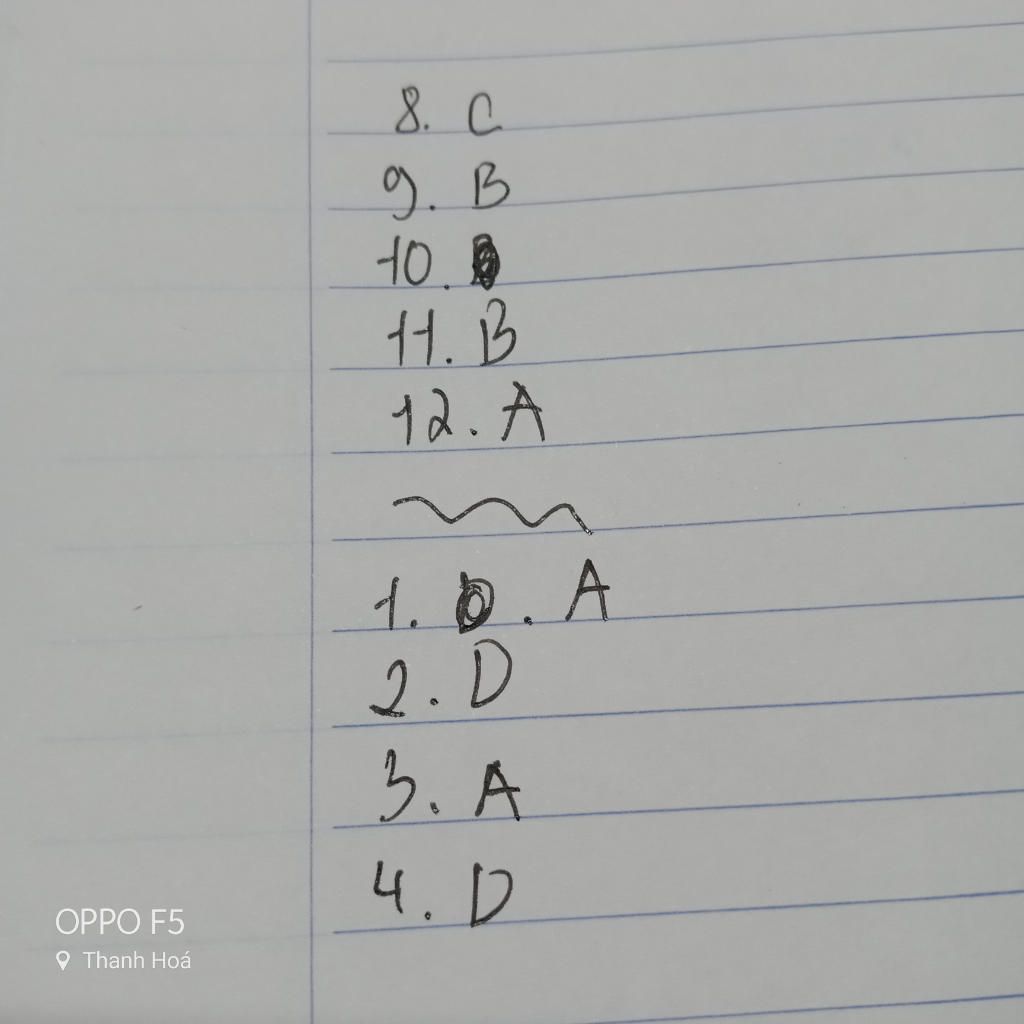 8. C
9. B
10.
11. B
12. A
1. . A
2. D
3. A
4. D
OPPO F5
Thanh Hoá